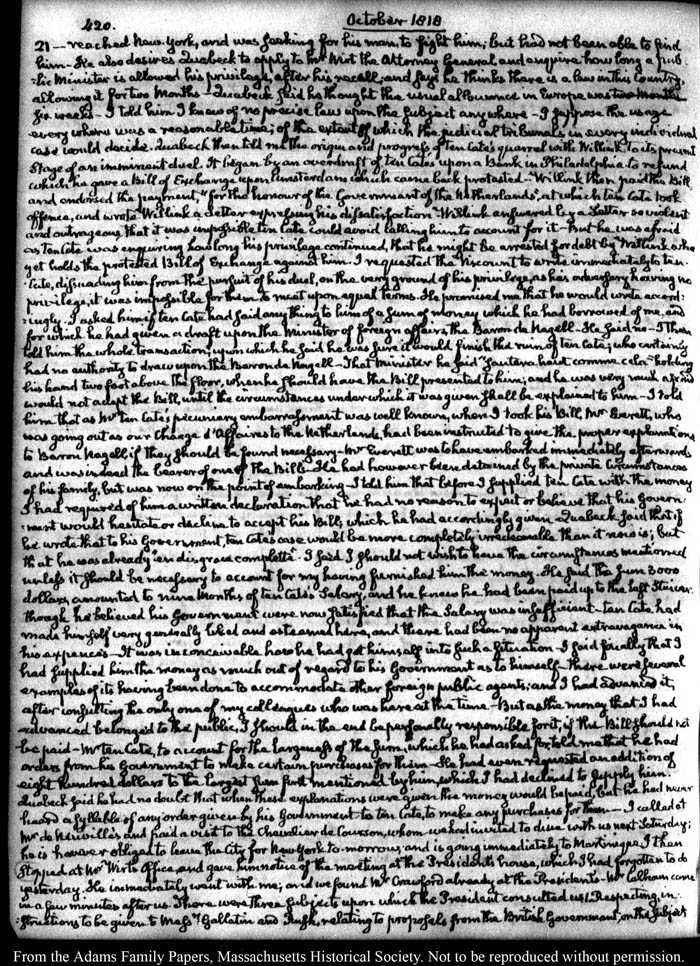 420.
October 1818
21 — reached New-York, and was seeking for his man to fight him; but had not been able to find
him — He also desires Quabeck to apply to Mr Wirt the Attorney General and enquire how long a pub-
-lic Minister is allowed his privilege, after his recall, and says he thinks there is a law in this Country,
allowing it for two Months — Quabeck said he thought the usual allowance in Europe was two Months
six weeks — I told him I knew of no precise law upon the subject any where — I suppose the usage
every where was a reasonable time; of the extent of which the judicial tribunals in every individual
case would decide. Quabeck then told me the origin and progress of ten Cate's quarrel with Willink to its present
stage of an imminent duel. It began by an overdraft of ten Cate's upon a Bank in Philadelphia to refund
which he gave a Bill of Exchange upon Amsterdam which came back protested — Willink then paid the Bill
and endorsed the payment, "for the honour of the Government of the Netherlands", at which ten Cate took
offence, and wrote Willink a Letter expressing his dissatisfaction — Willink answered by a Letter so violent
and outrageous that it was impossible ten Cate could avoid calling him to account for it — But he was afraid
as ten Cate was enquiring how long his privilege continued, that he might be arrested for debt by Willink who
yet holds the protested Bill of Exchange against him. I requested the Viscount to write immediately to ten
Cate, dissuading him from the pursuit of his duel, on the very ground of his privilege, as his adversary having no
privilege, it was impossible for them to meet upon equal terms. He promised me that he would write accord-
-ingly. I asked him if ten Cate had said any thing to him of a sum of money which he had borrowed of me, and
for which he had given a draft upon the Minister of foreign affairs, the Baron de Nagell. He said no — I then
told him the whole transaction; upon which he said he was sure it would finish the ruin of ten Cate; who certainly
had no authority to draw upon the Baron de Nagell — That Minister he said "sautera haut comme cela" holding
his hand two foot above the floor, when he should have the Bill presented to him; and he was very much afraid
would not accept the Bill, until the circumstances under which it was given shall be explained to him — I told
him that as Mr ten Cate's pecuniary embarrassment was well known, when I took his Bill, Mr Everett, who
was going out as our Chargé d'Affaires to the Netherlands, had been instructed to give the proper explanations
to Baron Nagell if they should be found necessary — Mr Everett was to have embarked immediately afterwards
and was indeed the bearer of one of the Bills. He had however been detained by the private circumstances
of his family, but was now on the point of embarking — I told him that before I supplied ten Cate with the money
I had required of him a written declaration that he had no reason to expect or believe that his Govern-
-ment would hesitate or decline to accept his Bill, which he had accordingly given — Quabeck said that if
he wrote that to his Government, ten Cate's case would be more completely irredeemable than it now is; but
that he was already "en disgrace complette". I said I should not wish to have the circumstances mentioned
unless it should be necessary to account for my having furnished him the money. He said the sum 3000
dollars, amounted to nine Months of ten Cate's Salary, and he knew he had been paid up to the last Stiver.
though he believed his Government were now satisfied that the Salary was insufficient — ten Cate had
made himself very generally liked and esteemed here, and there had been no apparent extravagance in
his expences — It was inconceivable how he had got himself into such a situation — I said finally that I
had supplied him the money as much out of regard to his Government as to himself — There were several
examples of its having been done to accommodate other foreign public agents; and I had advanced it,
after consulting the only one of my colleagues who was here at the time — But as the money that I had
advanced belonged to the public, I should in the end be personally responsible for it, if the Bill should not
be paid — Mr ten Cate, to account for the largeness of the sum, which he had asked for told me that he had
orders from his Government to make certain purchases for them — He had even requested an addition of
eight hundred dollars to the largest sum first mentioned by him, which I had declined to supply him.
Quabeck said he had no doubt that when these explanations were given the money would be paid, but he had never
heard a syllable of any order given by his Government to ten Cate, to make any purchases for them — I called at
Mr de Neuville's and paid a visit to the Chevalier de Courson, whom we had invited to dine with us next Saturday;
he is however obliged to leave the City for New York to-morrow, and is going immediately to Martinique. I then
stopped at Mr Wirt's Office and gave him notice of the meeting at the President's house, which I had forgotten to do
yesterday. He immediately went with me; and we found Mr Crawford already at the President's — Mr Calhoun came
in a few minutes after us. There were three subjects upon which the President consulted us. 1. Respecting in-
-structions to be given to Messrs Gallatin and Rush, relating to proposals from the British Government, on the subject
From the Adams Family Papers, Massachusetts Historical Society. Not to be reproduced without permission.